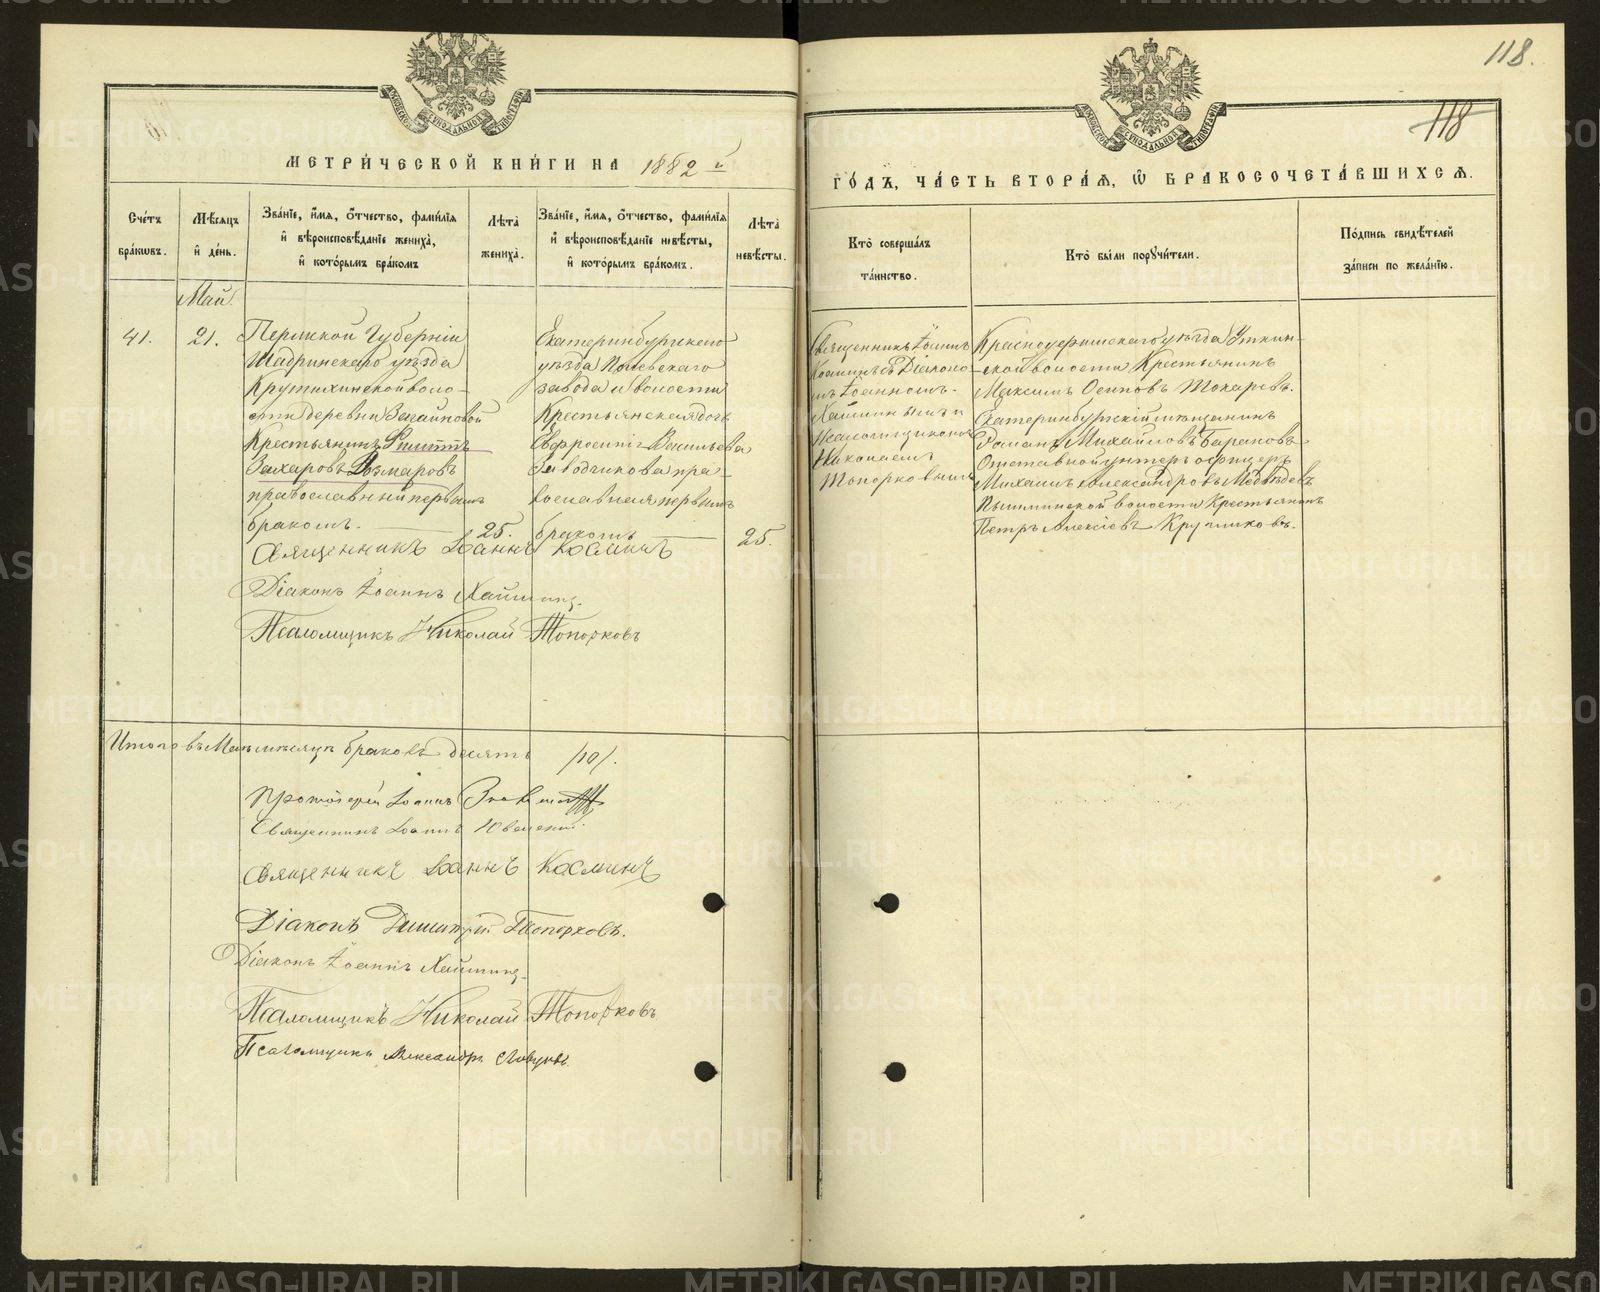 118.
118
МЕТРИ́ЧЕСКОЙ КНИ́ГИ НА 1882 й
ГО́ДЪ, ЧА́СТЬ ВТОРА́Я, Ѡ БРАКОСОЧЕТА́ВШИХСЯ.
Сче́тъ бра́кѡвъ.
Мѣ́сяцъ и҆ де́нь.
Зва́нїе, и҆́мя, ѻ҆́тчество, фами́лїя и҆ вѣроисповѣ́данїе жениха̀, и҆ кото́рымъ бра́комъ
Лѣта̀ жениха̀.
Зва́нїе, и҆́мя, ѻ҆́тчество, фами́лїя и҆ вѣроисповѣ́данїе невѣ́сты, и҆ кото́рымъ бра́комъ.
Лѣта̀ невѣ́сты.
Кто̀ соверша́лъ та́инство.
Кто̀ бы́ли порꙋчи́тели.
По́дпись свидѣ́телей за́писи по жела́нїю.
Май
41.
21.
Пермской Губерніи
Шадринскаго уѣзда
Крутихинской воло-
сти деревни
Крестьянинъ Филиппъ
Захаровъ
православный первымъ
бракомъ.
25.
Екатеринбургскаго
уѣзда Полевскаго
завода и волости
Крестьянская дочь
Евфросинія Васильева
Заводчикова пра-
вославная первымъ
бракомъ
25.
Священникъ Іоаннъ
Косминъ съ Діакono-
мъ Іоанномъ
и
Псаломщикомъ
Николаемъ
Топорковымъ
Красноуфимскаго уѣзда Уткин-
ской волости Крестьянинъ
Максимъ Осиповъ Токаревъ.
Екатеринбургскій мѣщанинъ
Романъ Михайловъ Барановъ
Отставной унтеръ офицеръ
Михаилъ Александровъ Медвѣдевъ
Пышминской волости Крестьянинъ
Петръ Алексіевъ Кругликовъ.
Священникъ Іоаннъ Косминъ
Діаконъ Іоаннъ
Псаломщикъ Николай Топорковъ
Итого въ Маѣ мѣсяцѣ браковъ десять /10/.
Протоіерей Іоаннъ
Священникъ Іоаннъ
Священникъ Іоаннъ Косминъ
Діаконъ Димитрій Топорковъ.
Діаконъ Іоаннъ
Псаломщикъ Николай Топорковъ
Псаломщикъ Александръ
METRIKI.GASO-URAL.RU